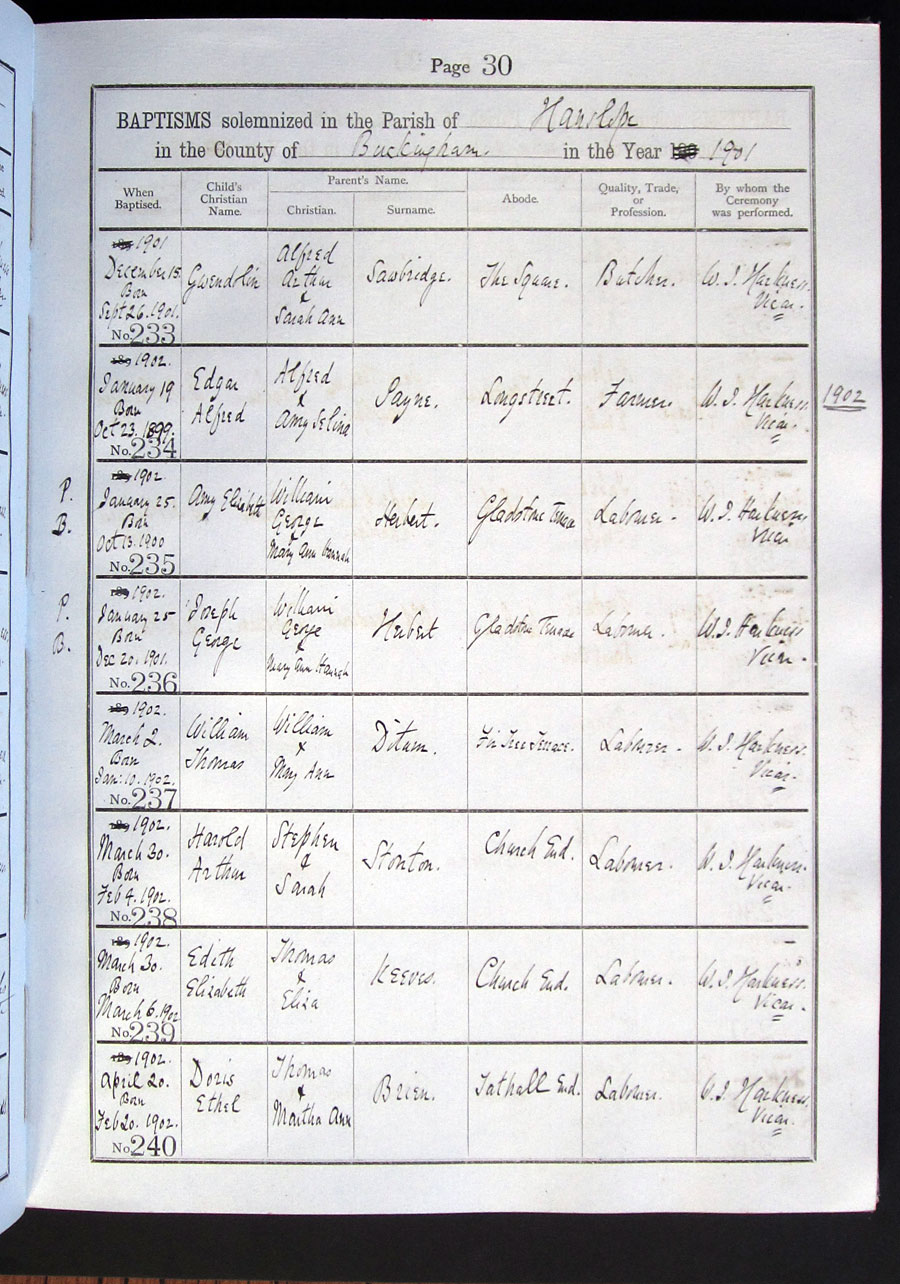 Page 30
BAPTISMS solemnized in the Parish of Hanslope
in the County of Buckingham. in the Year 1901
When Baptised. Child's Christian Name. Parent's Name. Christian. Surname. Abode. Quality, Trade, or Profession. By whom the Ceremony was performed.
1901
December 15
Born
Sept 26. 1901.
No. 233
Gwendolin
Alfred
Arthur
&
Sarah Ann
Sawbridge.
The Square.
Butcher.
W. J. Harkness.
Vicar.
1902.
January 19
Born
Oct 23. 1899.
No. 234
Edgar
Alfred
Alfred
&
Amy Selina
Payne.
Longstreet.
Farmer.
W. J. Harkness.
Vicar.
1902
P.
B.
1902
January 25.
Born
Oct 13. 1900
No. 235
Amy Elizabeth
William
George
&
Mary Ann Hannah
Herbert.
Gladstone Terrace
Labourer.
W. J. Harkness
Vicar
P.
B.
1902.
January 25
Born
Dec 20. 1901.
No. 236
Joseph
George
William
George
&
Mary Ann Hannah
Herbert
Gladstone Terrace
Labourer.
W. J. Harkness
Vicar.
1902.
March 2.
Born
Jan: 10. 1902.
No. 237
William
Thomas
William
&
Mary Ann
Ditum.
Fir Tree Terrace.
Labourer.
W. J. Harkness.
Vicar.
1902.
March 30.
Born
Feb 4. 1902.
No. 238
Harold
Arthur
Stephen
&
Sarah
Stonton.
Church End.
Labourer.
W. J. Harkness.
Vicar.
1902.
March 30.
Born
March 6. 1902
No. 239
Edith
Elizabeth
Thomas
&
Eliza
Keeves.
Church End.
Labourer.
W. J. Harkness.
Vicar.
1902.
April 20.
Born
Feb 20. 1902.
No. 240
Doris
Ethel
Thomas
&
Martha Ann
Brien.
Tathall End.
Labourer.
W. J. Harkness.
Vicar.